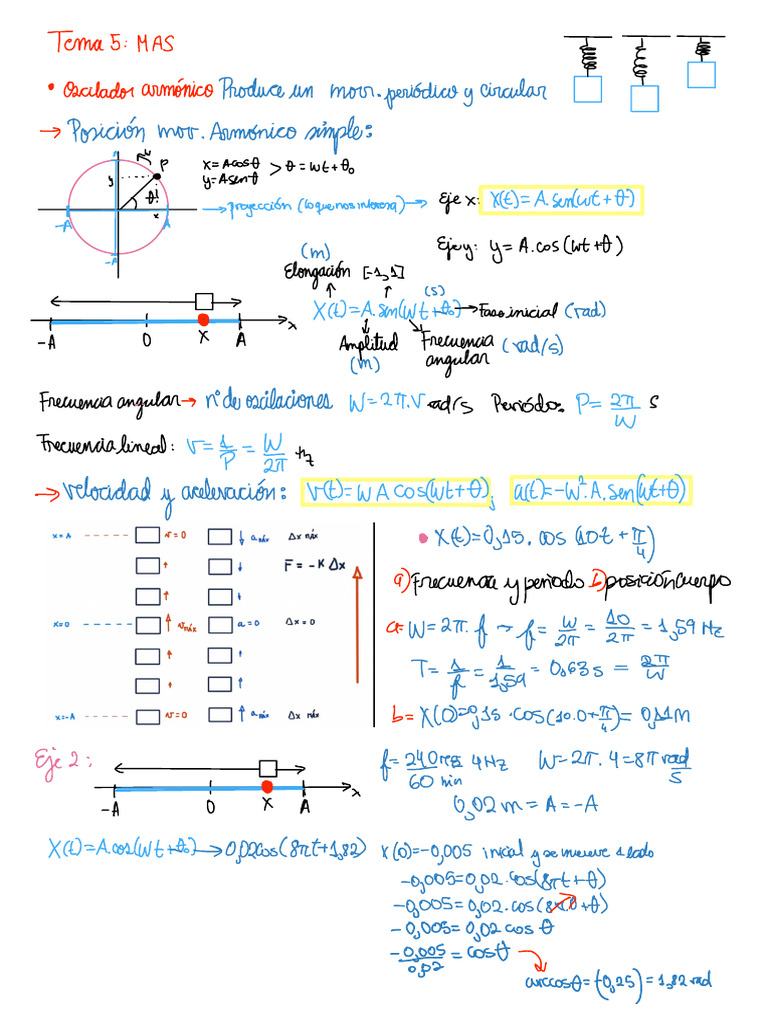 Tema 5: MAS
• Oscilador armónico Produce un mov. periódico y circular
→ Posición mov. Armónico simple:
P
y
θ
-A
x
A
-A
x = A cos θ
y = A sen θ > θ = wt + θ₀
→ proyección (lo que nos interesa) → Eje x: X(t) = A. sen(wt + θ)
Eje y: y = A. cos (wt + θ)
(m)
Elongación [-1,1]
(s)
X(t) = A. sen(wt + θ₀) → Fase inicial (rad)
Amplitud
(m)
Frecuencia angular (rad/s)
-A 0 X A x
Frecuencia angular → nº de oscilaciones W = 2π.ν rad/s Periódo: P = 2π/W s
Frecuencia lineal: ν = 1/P = W/2π Hz
→ Velocidad y aceleración: v(t) = W A cos(wt + θ); a(t) = -W². A. sen(wt + θ)
x = A v = 0 a máx Δx máx
F = -K Δx
x = 0 v máx a = 0 Δx = 0
x = -A v = 0 a máx Δx máx
• X(t) = 0,15. cos (10t + π/4)
a) Frecuencia y periodo b) posición cuerpo
a = W = 2π. f → f = W/2π = 10/2π = 1,59 Hz
T = 1/f = 1/1,59 = 0,63 s = 2π/W
b = X(0) = 0,15 · cos(10.0 + π/4) = 0,11 m
Eje 2:
-A 0 X A x
f = 240 res/60 min 4 Hz W = 2π. 4 = 8π rad/s
0,02 m = A = -A
X(t) = A. cos(wt + θ₀) → 0,02 cos(8πt + 1,82)
x(0) = -0,005 inicial y se mueve 1 lado
-0,005 = 0,02 · cos(8πt + θ)
-0,005 = 0,02 · cos(8π.0 + θ)
-0,005 = 0,02 cos θ
-0,005/0,02 = cos θ
arccos θ = (-0,25) = 1,82 rad